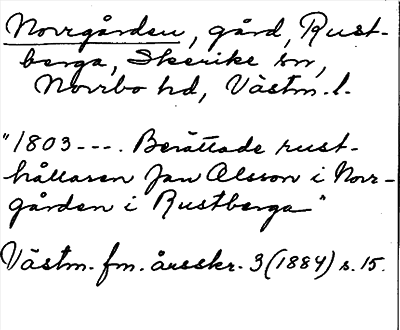 Norrgården, gård, Rust-
berga, Skerike sn,
Norrbo hd, Västm. l.
"1803---. Berättade rust-
hållaren Jan Olsson i Norr-
gården i Rustberga"
Västm. fm. årsskr. 3 (1884) s. 15.